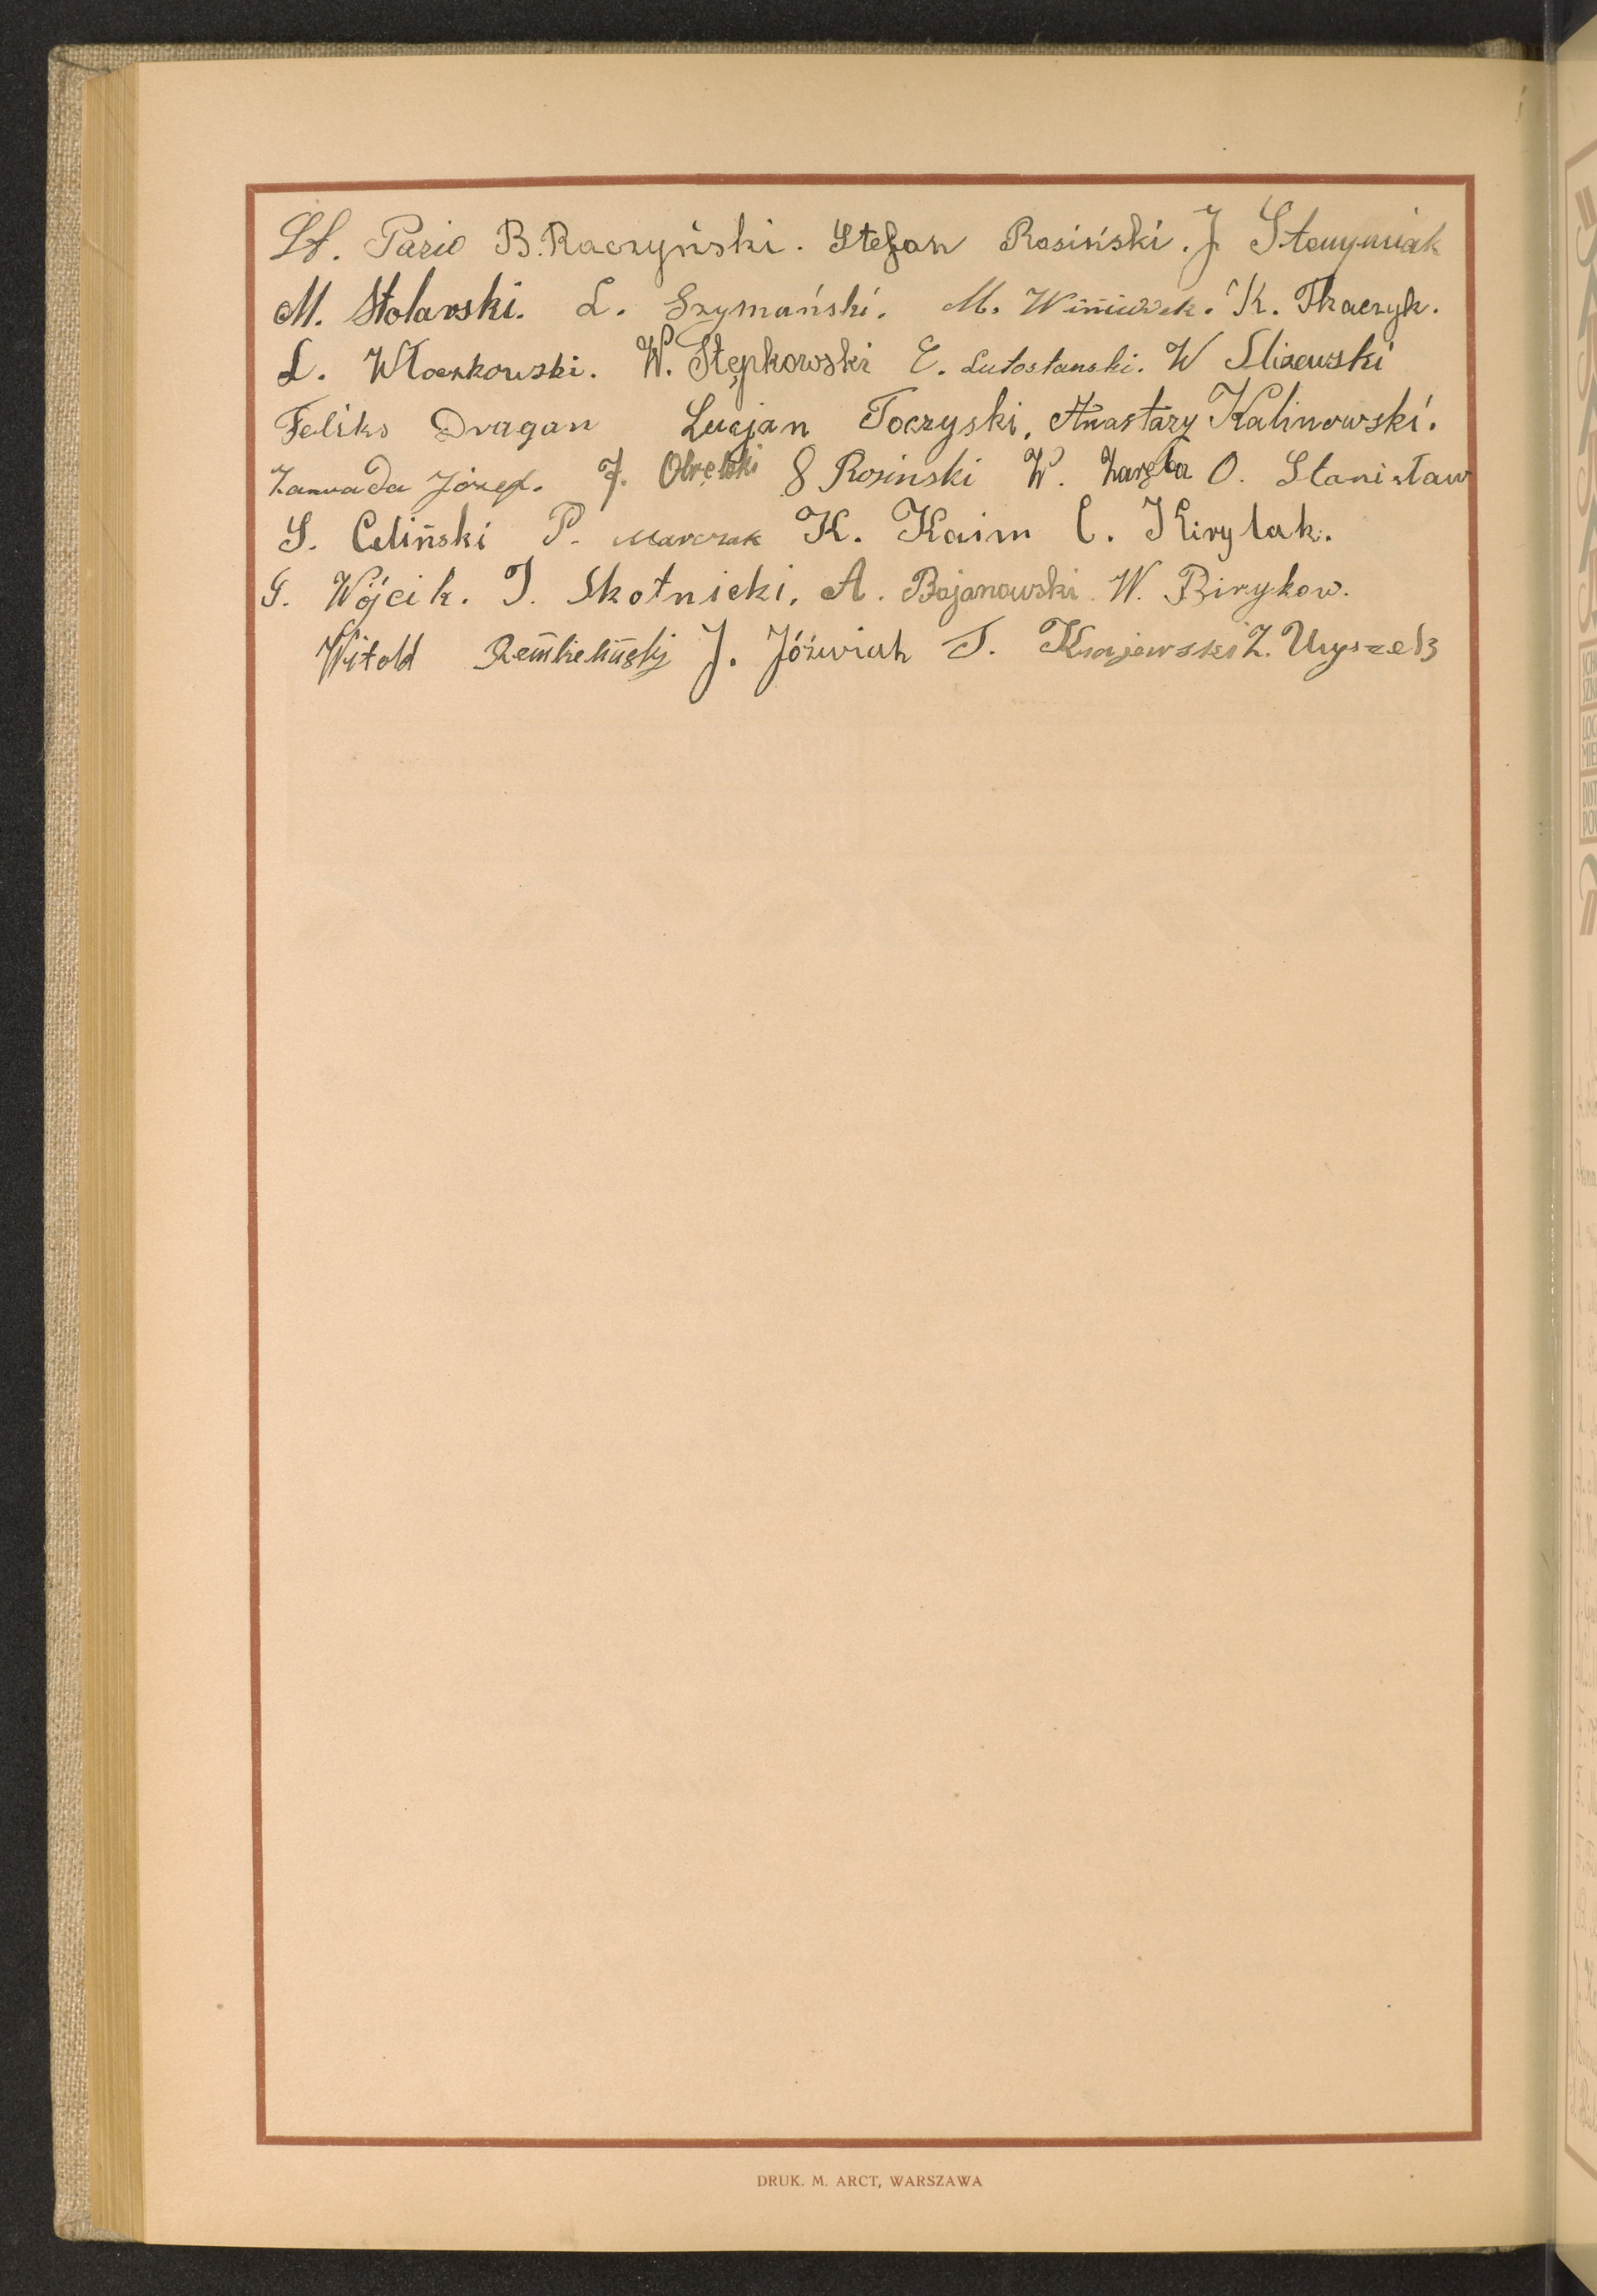 St. Pazio B. Raczyński. Stefan Rosiński. J
M. Stolarski. L. Szymański. M. K. Tkaczyk.
L. Włoczkowski. W. Stępkowski E. Lutostanski. W Slizewski
Feliks Dragan Lucjan Toczyski, Anastazy Kalinowski.
Zawada Józef. J. S Rosinski W. Zaręba O. Stanisław
S. Celiński P. Marczak K. Kaim C. Kirylak.
G. Wójcik. J. Skotnicki, A. Bojanowski W. Birykow.
Witold J. Jóźwiak T. Krajewski Z. Uryszek
DRUK. M. ARCT, WARSZAWA